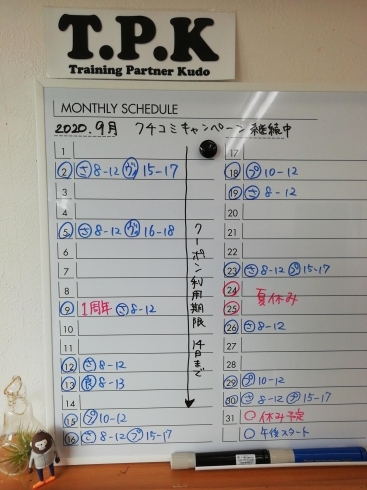 T.P.K
Training Partner Kudo
MONTHLY SCHEDULE
2020.9月 クチコミキャンペーン継続中
1
2 さ 8-12 15-17
3
4
5 さ 8-12 16-18
6
7
8
9 1周年 さ 8-12
10
11
12 さ 8-12
13 食 8-13
14
15 プ 10-12
16 さ 8-12 プ 15-17
クーポン利用期限 14日まで
17
18 プ 10-12
19 さ 8-12
20
21
22
23 さ 8-12 プ 15-17
24 夏休み
25
26 さ 8-12
27
28
29 プ 10-12
30 さ 8-12 プ 15-17
31 ○休み予定
○午後スタート